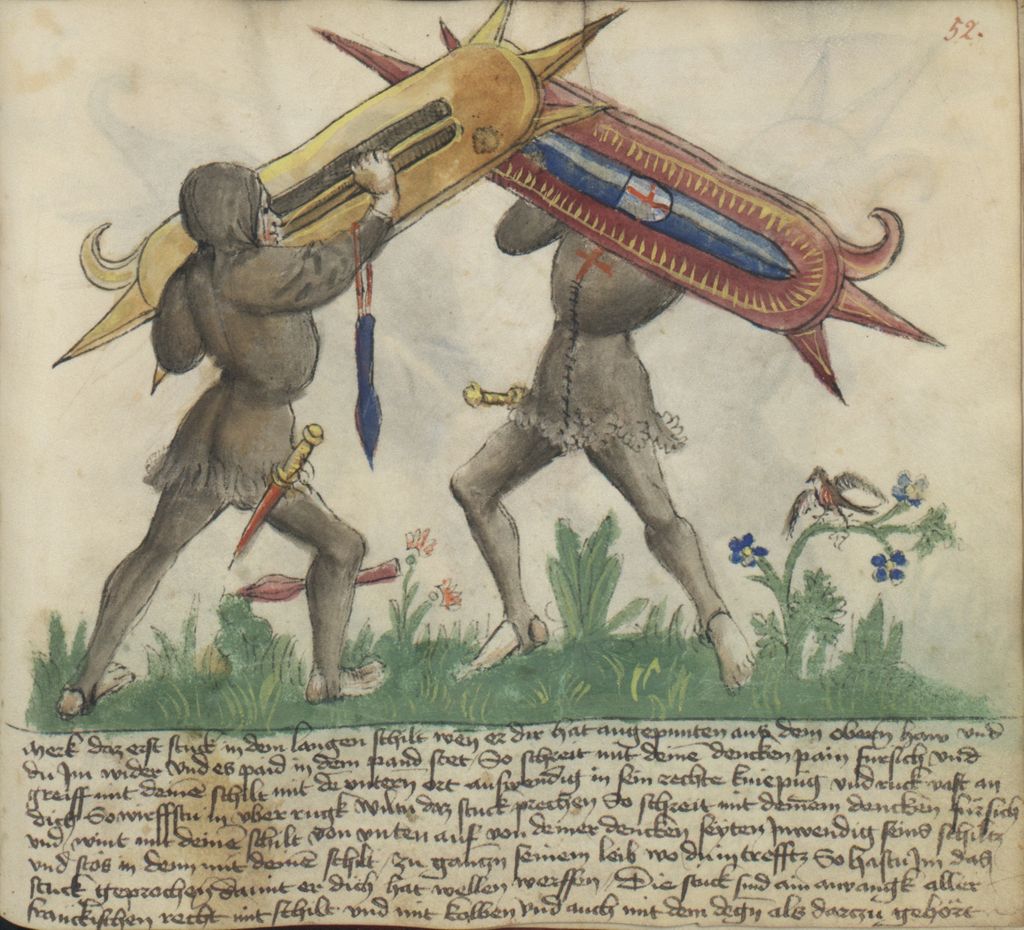 52.
Merk daz erst stuck in dem langen schilt wen er dir hat angepunten auß dem obern haw und
du Im wider und es paid in dem pand stet So schreit mit deinē dencken pain fursich und
greiff mit deinē schilt mit dē untern ort auswendig in sein rechte kniepug und ruck vast an
dich So wirffstu in uber rugk Wiltu daz stuck prechen So schreit mit deinem dencken fürsich
und wint mit deinē schilt von unten auf von deiner dencken seyten Inwendig seins schiltz
und stos in denn mit deinē schilt zu gantzn seinem leib wo du in trefftz So hastu Im das
stuck geprochen damit er dich hat wellen werffen Die stuck sind ain anvangk aller
franckischen recht mit schilt und mit kolben und auch mit dem degn als darczu gehört